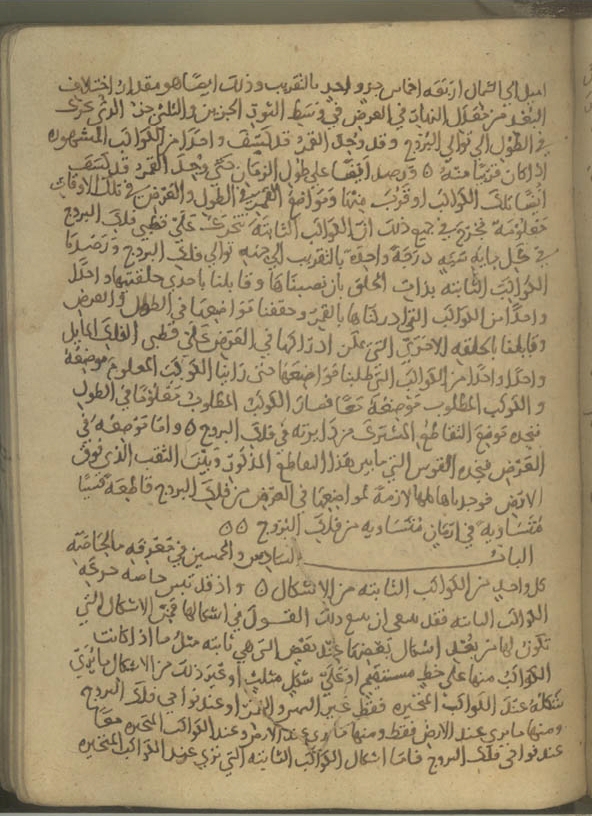 اميل الى الشمال اربعه اخماس جزو واحد بالتقريب وذلك ايضا هو مقدار اختلاف
البعد من قبل الزيادة في العرض في وسط الثور الجزين والثلثي جزء الذي تحرك
في الطول الى توالي البروج وقد وجد القمر قد كسف واحدا من الكواكب المشهوره
اذا كان قريبا منه ورصد ايضا على طول الزمان حتى وجد القمر قد كسف
ايضا تلك الكواكب او قرب منها ومواضع القمر في الطول والعرض في تلك الاوقات
معلومة فخرج في جميع ذلك ان الكواكب الثابتة تتحرك على قطبي فلك البروج
في كل مايه سنه درجة واحدة بالتقريب الى جهه توالي فلك البروج ورصدنا
الكواكب الثابته بذات الحلق بان نصبناها وقابلنا باحدى حلقتيها واحدا
واحدا من الكواكب التي ادركناها بالقمر وحققنا مواضعها في الطول والعرض
وقابلنا بالحلقه الاخرى التي يمكن ادراكها في العرض على قطبي الفلك المايل
واحدا واحدا من الكواكب التي طلبنا مواضعها حتى راينا الكوكب المعلوم موضعه
والكوكب المطلوب موضعه معا فصار الكوكب المطلوب معلوما في الطول
نجده موضع التقاطع المشترك من دايرته في فلك البروج واما موضعه في
العرض فنجده القوس التي ما بين هذا التقاطع المذكور وبين الثقب الذي فوق
الارض فوجدناها لهما لازمة لمواضعها في العرض من فلك البروج قاطعة قسيا
متساوية في ازمان متساويه من فلك البروج
الباب السادس والخمسين في معرفه ما لخاصة
كل واحد من الكواكب الثابته من الاشكال واذ قد تبين خاصه حركه
الكواكب الثابته فقد ينبغي ان نتبع ذلك القول في اشكالها فمن الاشكال التي
تكون لها من بعد اشكال بعضها عند بعض التي هي ثابته مثل ما اذا كانت
الكواكب منها على خط مستقيم او على شكل مثلث او غير ذلك من الاشكال ما يرى
شكله عند الكواكب المتحيره فقط غير الشمس والقمر او عند نواحي فلك البروج
ومنها ما يرى عند الارض فقط ومنها ما يرى عند الارض وعند الكواكب المتحيره معا
عند نواحي فلك البروج فاما اشكال الكواكب الثابته التي ترى عند الكواكب المتحيره